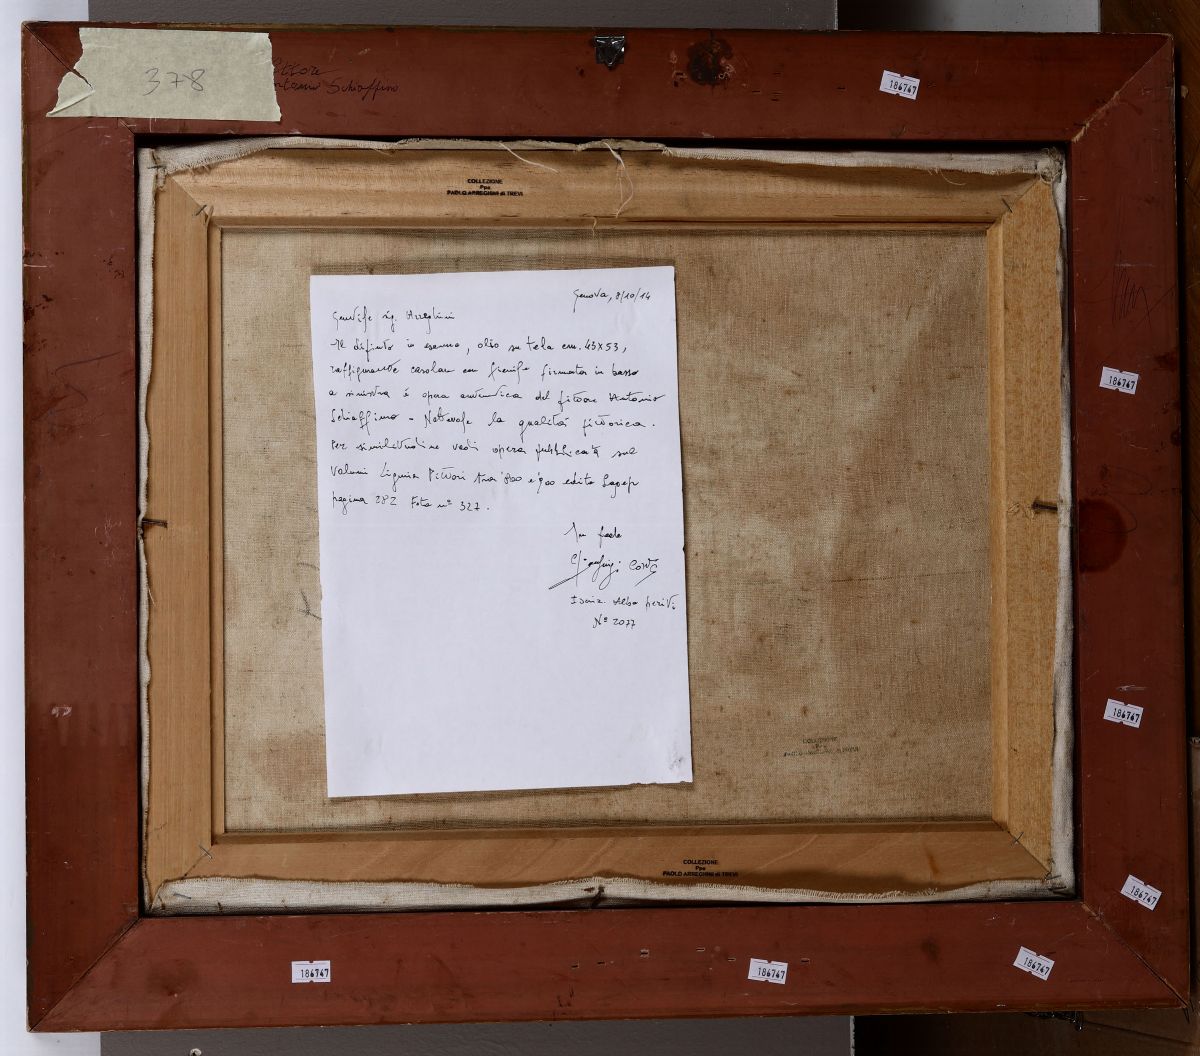 378
ttore
Antonio Schiaffino
186747
COLLEZIONE
Ppa
PAOLO ARREGHINI di TREVI
Genova, 8/10/14
Gentile sig. Arreghini
Il dipinto in esame, olio su tela cm. 43x53,
raffigurante casolare con fienile firmato in basso
a sinistra è opera autentica del pittore Antonio
Schiaffino - Notevole la qualità pittorica.
Per similitudine vedi opera pubblicata sul
Volumi Liguria Pittori tra '800 e '900 edito Sagep
pagina 282 Foto n° 327.
In fede
Conti
Iscriz. Albo periti
N° 2077
186747
186747
COLLEZIONE
Ppa
PAOLO ARREGHINI di TREVI
COLLEZIONE
Ppa
PAOLO ARREGHINI di TREVI
186747
186747
186747
186747